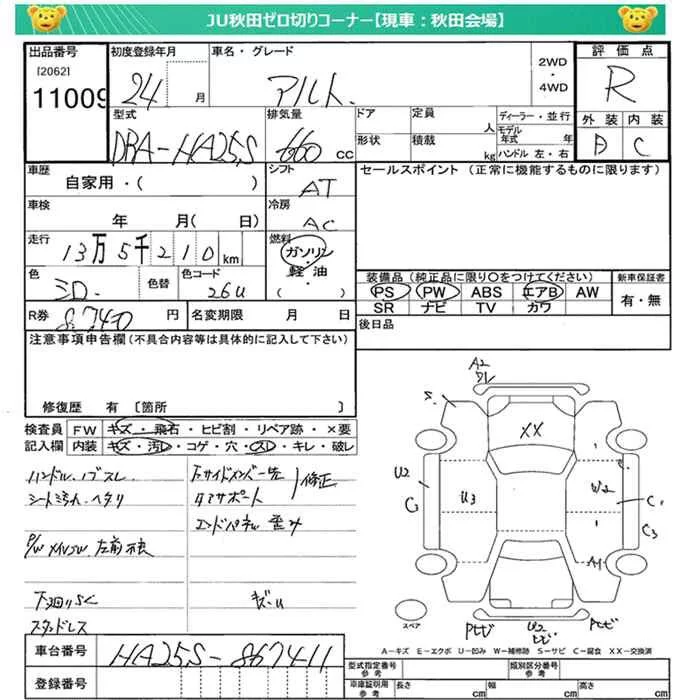 JU秋田ゼロ切りコーナー【現車：秋田会場】
出品番号 初度登録年月 車名・グレード 2WD・4WD 評価点
[2062]
11009 24 月 アルト R
外装 内装
D C
型式 排気量 ドア 定員 人 ディーラー・並行
形状 積載 kg モデル年式 年
ハンドル 左・右
DBA-HA25S 660 CC
車歴 シフト セールスポイント（正常に機能するものに限ります）
自家用・（ ） AT
車検 冷房
年 月（ 日） AC
走行 燃料
13万5千210km ガソリン・軽油・（ ）
色 色替 色コード 装備品（純正品に限り○をつけてください） 新車保証書
シロ 26U PS PW ABS エアB AW 有・無
SR ナビ TV カワ
R券 8740円 名変期限 月 日 後日品
注意事項申告欄（不具合内容等は具体的に記入して下さい）
修復歴 有 〔箇所 〕
検査員記入欄 FW キズ・飛石・ヒビ割・リペア跡・×要
内装 キズ・汚レ・コゲ・穴・スレ・キレ・破レ
ハンドル、ノブスレ
シート汚れ・ヘタリ
P/W メインSW 左前不良
下廻りSC
スタッドレス
Fサイドメンバー先
タテサポート
修正
エンドパネル 歪み
キズU
A2
S
XX
U2
C
U3
W2
C
C3
A1
U2
スペア
A−キズ E−エクボ U−凹み W−補修跡 S−サビ C−腐食 XX−交換済
車台番号 HA25S-867411
登録番号
型式指定番号 参考 類別区分番号 参考
車庫証明用 参考 長さ cm 幅 cm 高さ cm